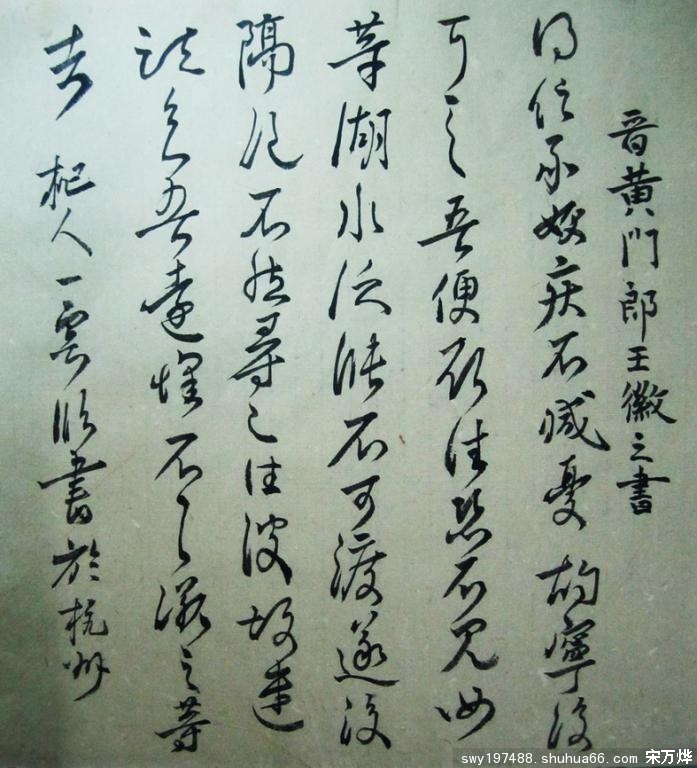 晋黄門郎王徽之書
得信承嫂疾不減憂灼寧復
可言吾便欲往恐不見汝
等湖水泛漲不可渡遂復
隔 不然尋 往彼故遣
知吾遠懷不 徽之等
書 杞人一雲臨書於杭州
swy197488.shuhua66.com 宋万烨